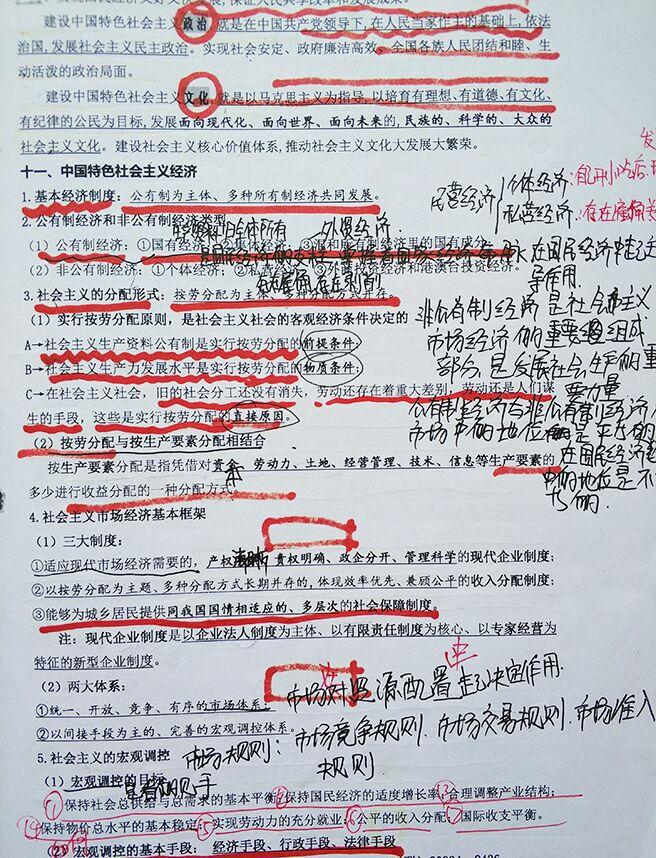 建设中国特色社会主义政治,就是在中国共产党领导下,在人民当家作主的基础上,依法
治国,发展社会主义民主政治。实现社会安定、政府廉洁高效、全国各族人民团结和睦、生
动活泼的政治局面。
建设中国特色社会主义文化,就是以马克思主义为指导,以培育有理想、有道德、有文化、
有纪律的公民为目标,发展面向现代化、面向世界、面向未来的,民族的、科学的、大众的
社会主义文化。建设社会主义核心价值体系,推动社会主义文化大发展大繁荣。
十一、中国特色社会主义经济
1.基本经济制度:公有制为主体、多种所有制经济共同发展。
民营经济
个体经济:
私营经济:
2.公有制经济和非公有制经济类型
外资经济
(1)公有制经济:①国有经济②集体经济③混和所有制经济里的国有成分
在国民经济
(2)非公有制经济:①个体经济②私营经济③外商投资经济和港澳台投资经济。
导作用.
3.社会主义的分配形式:按劳分配为主体、多种分配方式并存。
(1)实行按劳分配原则,是社会主义社会的客观经济条件决定的
非公有制经济是社会主义
A→社会主义生产资料公有制是实行按劳分配的前提条件;
市场经济的重要组成
B→社会主义生产力发展水平是实行按劳分配的物质条件;
部分,是发展社会生产的重
C→在社会主义社会,旧的社会分工还没有消失,劳动还存在着重大差别,劳动还是人们谋
要力量
生的手段,这些是实行按劳分配的直接原因。
公有制经济与非公有制经济
(2)按劳分配与按生产要素分配相结合
市场中的地位是平等的
在国民经济
按生产要素分配是指凭借对资本、劳动力、土地、经营管理、技术、信息等生产要素的
中的地位是不
多少进行收益分配的一种分配方式。
4.社会主义市场经济基本框架
(1)三大制度:
①适应现代市场经济需要的,产权清晰、责权明确、政企分开、管理科学的现代企业制度;
②以按劳分配为主题、多种分配方式长期并存的,体现效率优先、兼顾公平的收入分配制度;
③能够为城乡居民提供同我国国情相适应的、多层次的社会保障制度。
注:现代企业制度是以企业法人制度为主体、以有限责任制度为核心、以专家经营为
特征的新型企业制度。
(2)两大体系:
市场对资源配置起决定作用.
①统一、开放、竞争、有序的市场体系;
②以间接手段为主的、完善的宏观调控体系。
市场规则:市场竞争规则.市场交易规则.市场准入
规则
5.社会主义的宏观调控
(1)宏观调控的目标
①保持社会总供给与总需求的基本平衡②保持国民经济的适度增长率③合理调整产业结构;
④保持物价总水平的基本稳定;⑤实现劳动力的充分就业;⑥公平的收入分配⑦国际收支平衡。
(2)宏观调控的基本手段:经济手段、行政手段、法律手段